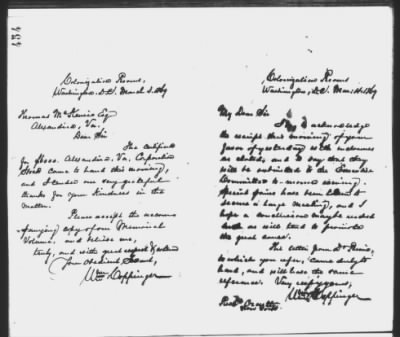 434
Colonization Rooms,
Washington, D.C. March 5. 1869
Thomas McKenzie Esq
Alexandria, Va.
Dear Sir
The certificate
for $1000. Alexandria, Va, Corporation
Stock came to hand this morning,
and I tender you very grateful
thanks for your kindness in the
matter.
Please accept the accom-
panying copy of our Memorial
Volume, and believe me,
truly, and with great respect &
Your obedient Servant,
Wm Coppinger
Colonization Rooms
Washington, D.C. Mar. 1869
My Dear Sir
I acknowledge
the receipt this morning of your
favor of yesterday with the
as stated, and to say that they
will be submitted to the Executive
Committee to-morrow evening.
Special pains have been taken to
secure a large meeting, and I
hope a conclusion may be reached
such as will tend to promote
the great cause.
The letter from Dr
to which you refer, came duly to
hand, and will have the same
reference. Very respy yours,
Wm Coppinger
New York